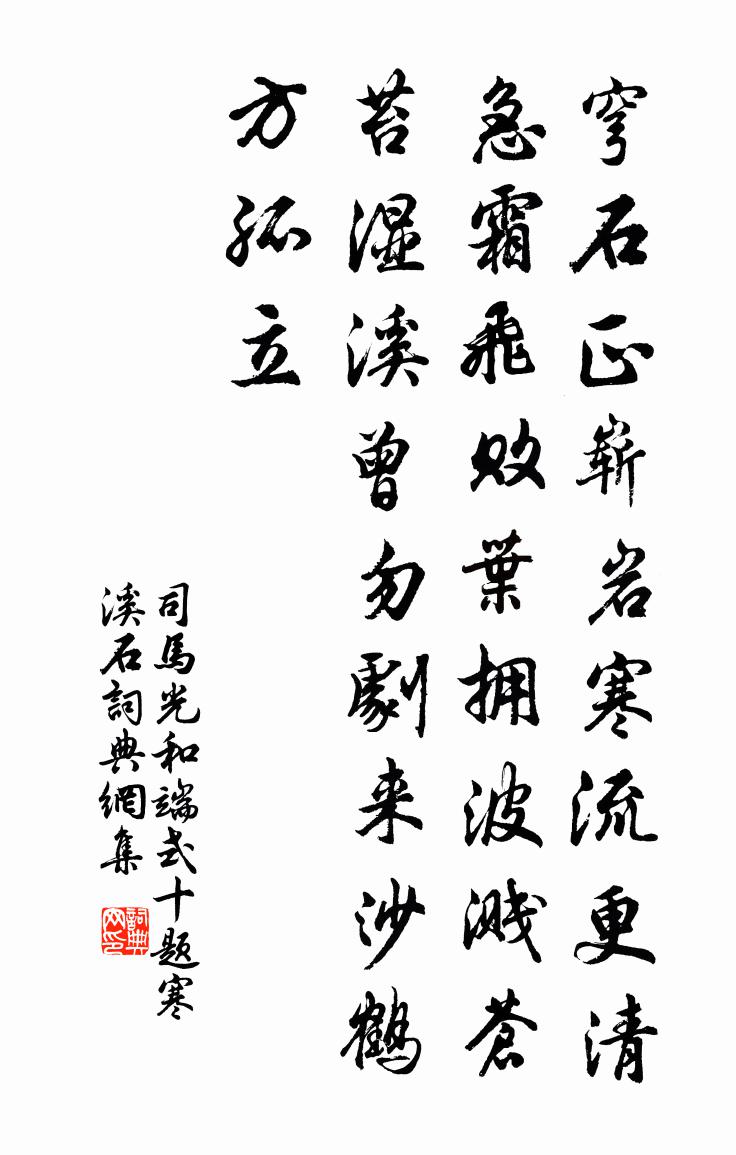 穹石正嶄岩寒流更清
急霜飛敗葉拥波溅蒼
苔湿溪曾勿劇来沙鶴
方孤立
司馬光和端式十题寒
溪石詞典網集
詞典网印